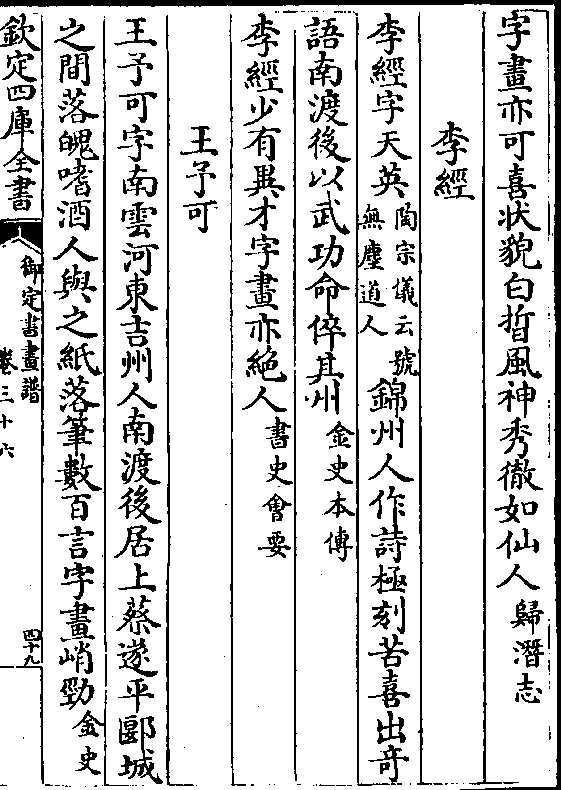 字畫亦可喜狀貌白晳風神秀徹如仙人歸潛志
李經
李經字天英陶宗儀云號無塵道人錦州人作詩極刻苦喜出竒
語南渡後以武功命倅其州金史本傳
李經少有異才字畫亦絶人書史會要
王予可
王予可字南雲河東吉州人南渡後居上蔡遂平郾城
之間落魄嗜酒人與之紙落筆數百言字畫峭勁金史
欽定四庫全書
御定書畫譜
卷三十六
四十九